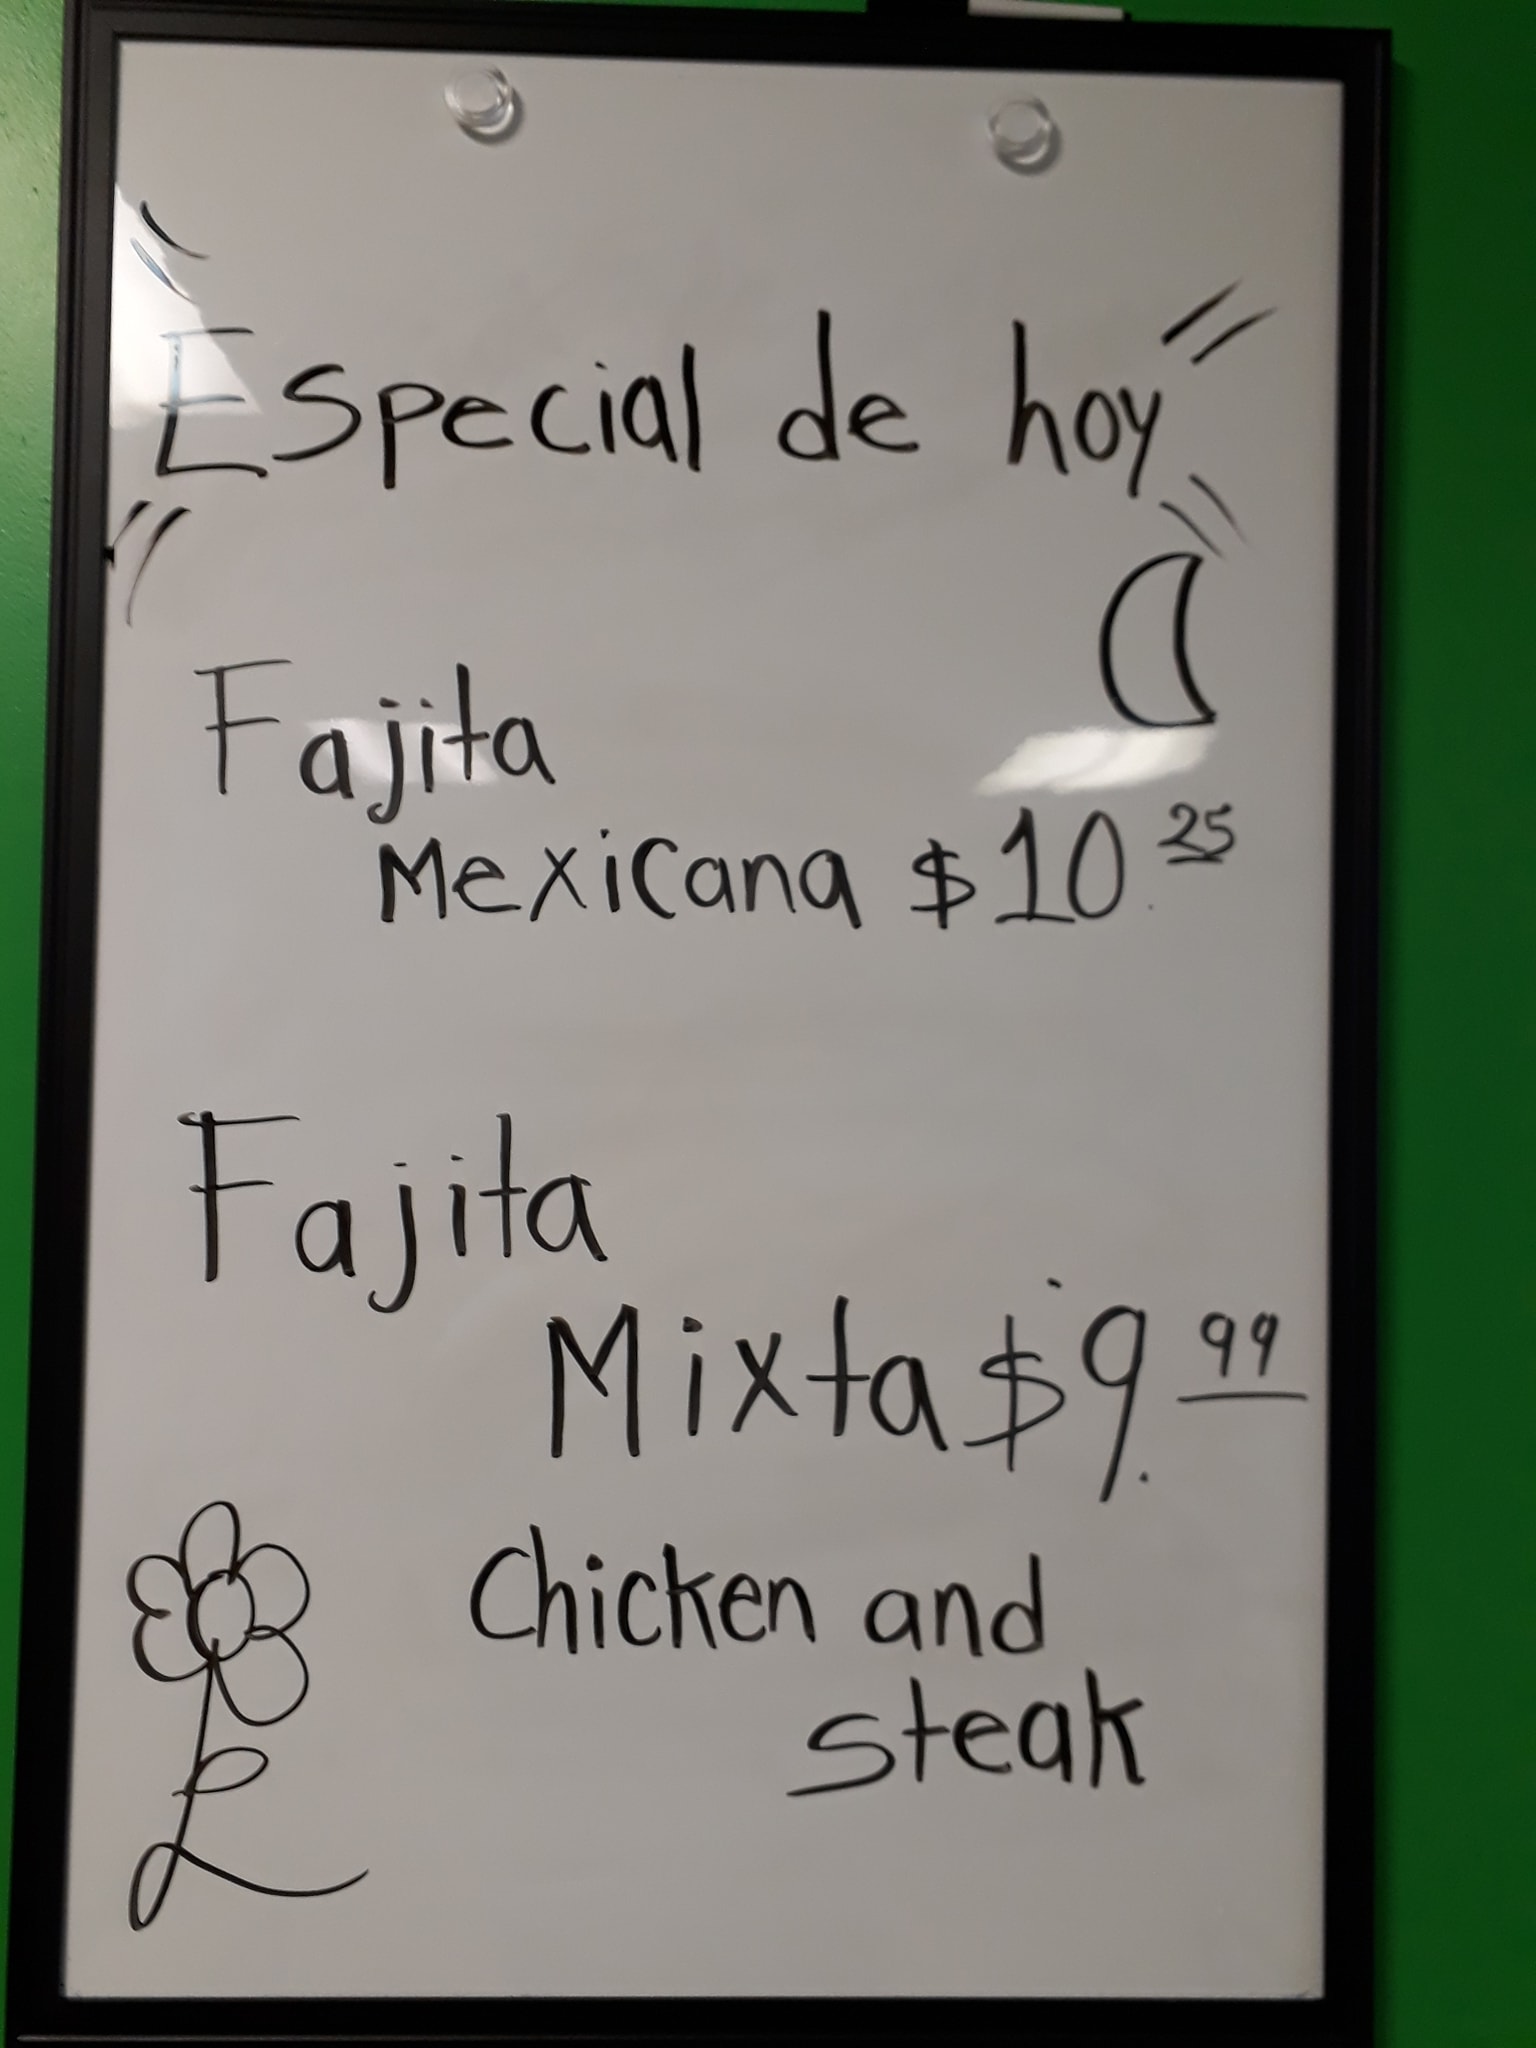 Especial de hoy
Fajita
Mexicana $10.25
Fajita
Mixta $9.99
Chicken and
steak